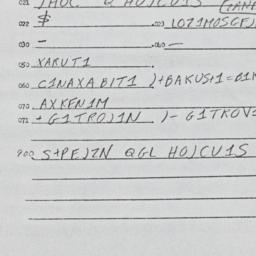 021 JHOC Q HOJCU1S
022 $ .023 LOZ1MOSGFJ
030 - .040 -
050 XAKUT1
060 C1NAXABIT1 )+BAKUS+1=
070 AXKFN1M
071 +G1TROJ1N )-G1TKOV
900 S+PEJZN QGL HOJCU1S